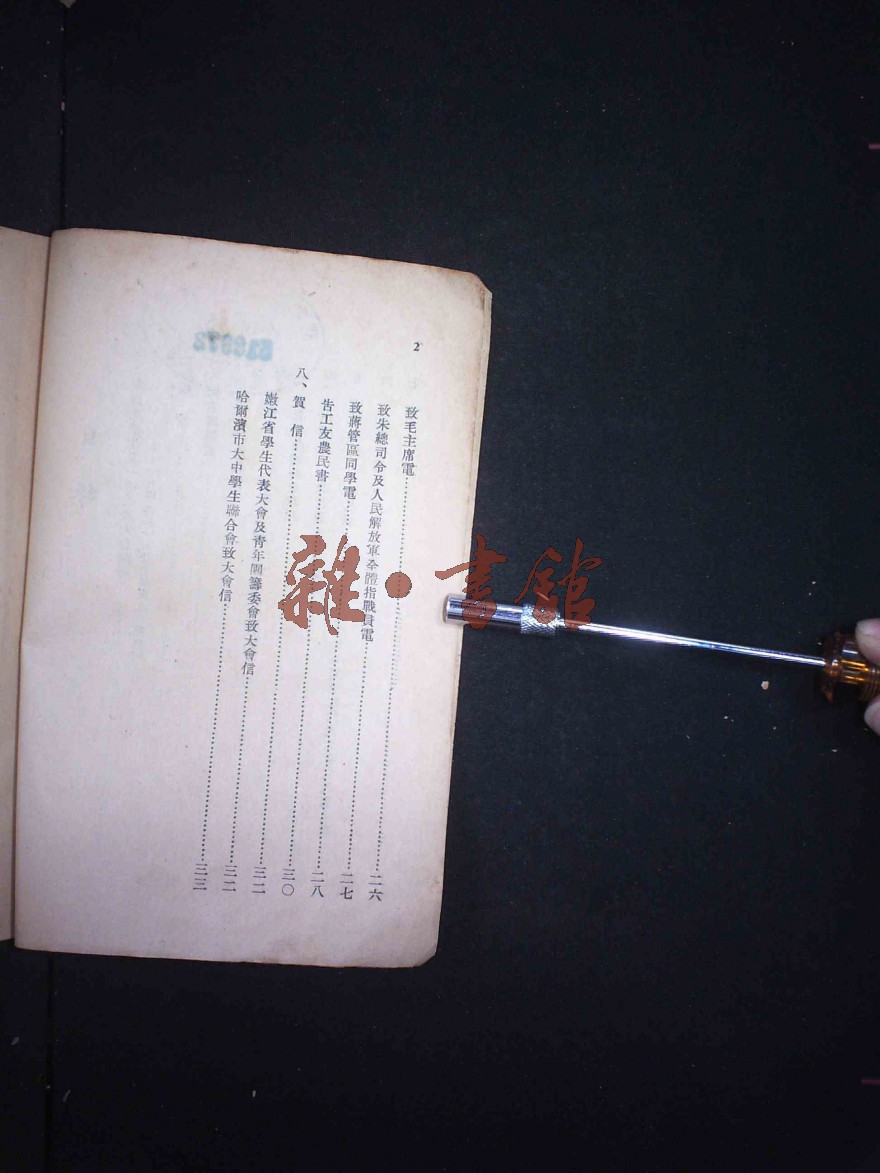 2
致毛主席電……二六
致朱總司令及人民解放軍全體指戰員電……二七
致蔣管區同學電……二八
告工友農民書……三〇
八、賀信……三二
嫩江省學生代表大會及青年團籌委會致大會信……三二
哈爾濱市大中學生聯合會致大會信……三三
雜·書館